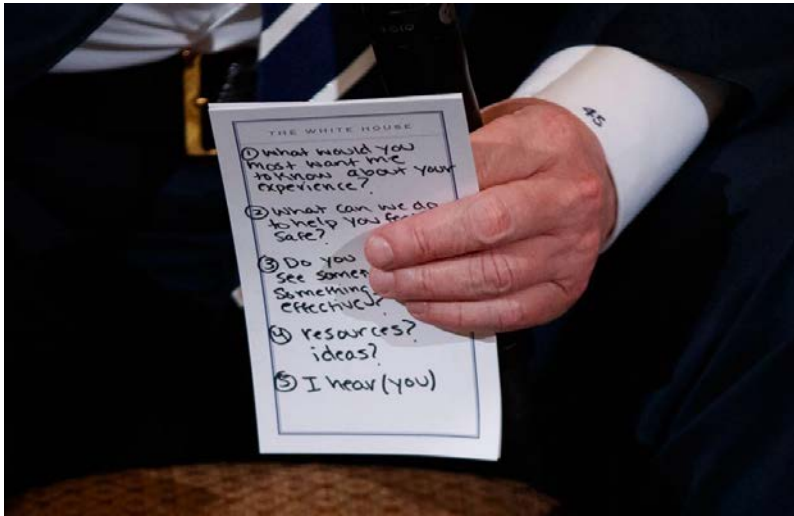 THE WHITE HOUSE
① What would you
most want me
to know about your
experience?
② What can we do
to help you
safe?
③ Do you
see
Something
effective?
④ resources?
ideas?
⑤ I hear (you)
45